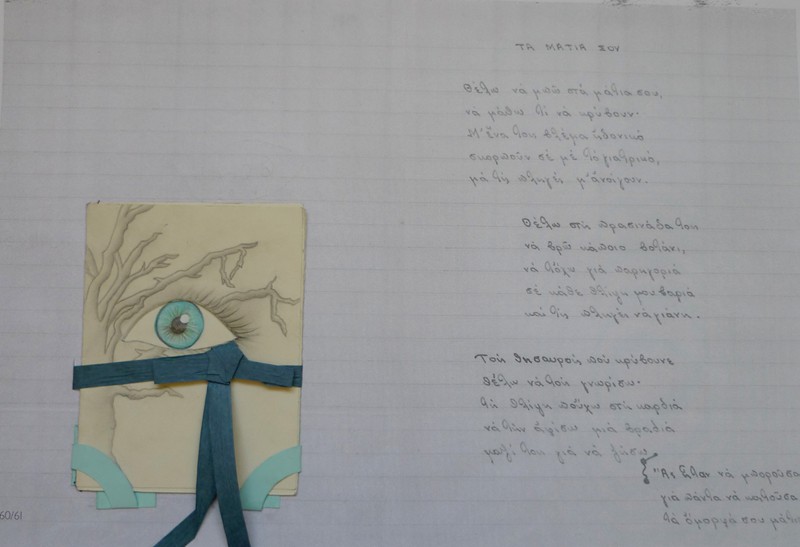 ΤΑ ΜΑΤΙΑ ΣΟΥ
Θέλω νά μπῶ στά μάτια σου,
νά μάθω τί νά κρύβουν·
Μ' ἕνα τους βλέμα
σκορποῦν σέ μέ τό γιατρικό,
μά τίς πληγές μ' ἀνοίγουν.
Θέλω στή πρασινάδα τους
νά βρῶ κάποιο βοτάνι,
νά τὄχω γιά παρηγοριά
σέ κάθε θλίψη μου βαριά
καί τίς πληγές νά γιάνη.
Τούς θησαυρούς πού κρύβουνε
θέλω νά τούς γνωρίσω·
τή θλίψη ποὔχω στή καρδιά
νά τήν ἀφίσω μιά βραδιά
μαζί τους γιά νά ζήσω
Ἄς ἦταν νά μποροῦσα
γιά πάντα νά κυτοῦσα
τά ὄμορφά σου μάτια
60/61